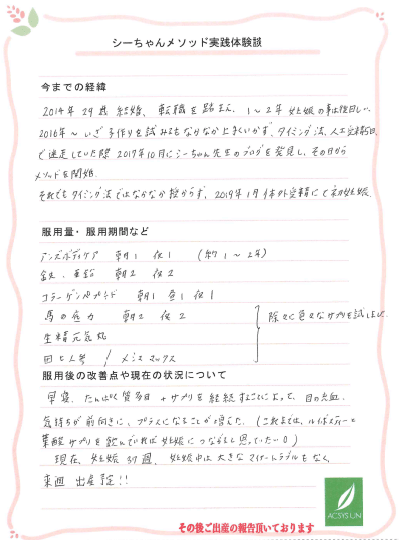 シーちゃんメソッド実践体験談
今までの経緯
2014年 29歳 結婚、転職を踏まえ、1〜2年 妊娠の事は後回し。
2016年〜 いざ 子作りを試みるもなかなか上手くいかず、タイミング法、人工授精5回、
で迷走していた際 2017年10月にシーちゃん先生のブログを発見し、その日から
メソッドを開始。
それでもタイミング法ではなかなか授からず、2019年1月体外受精にて初妊娠。
服用量・服用期間など
朝1 夜1 (約1〜2年)
鉄・亜鉛 朝2 夜2
コラーゲンペプチド 朝1 昼1 夜1
馬の底力 朝2 夜2
除々に色々なサプリを試しました
生精元気丸
田七人参 / メンズマックス
服用後の改善点や現在の状況について
早寝、たんぱく質多目+サプリを継続することによって、目の充血、
気持ちが前向きに、プラスになることが増えた。(これまでは、ルイボスティーと
葉酸サプリを飲んでいれば妊娠につながると思っていた)
現在、妊娠37週、妊娠中は大きなマイナートラブルもなく、
来週 出産予定!!
ACSYS UN
その後ご出産の報告頂いております